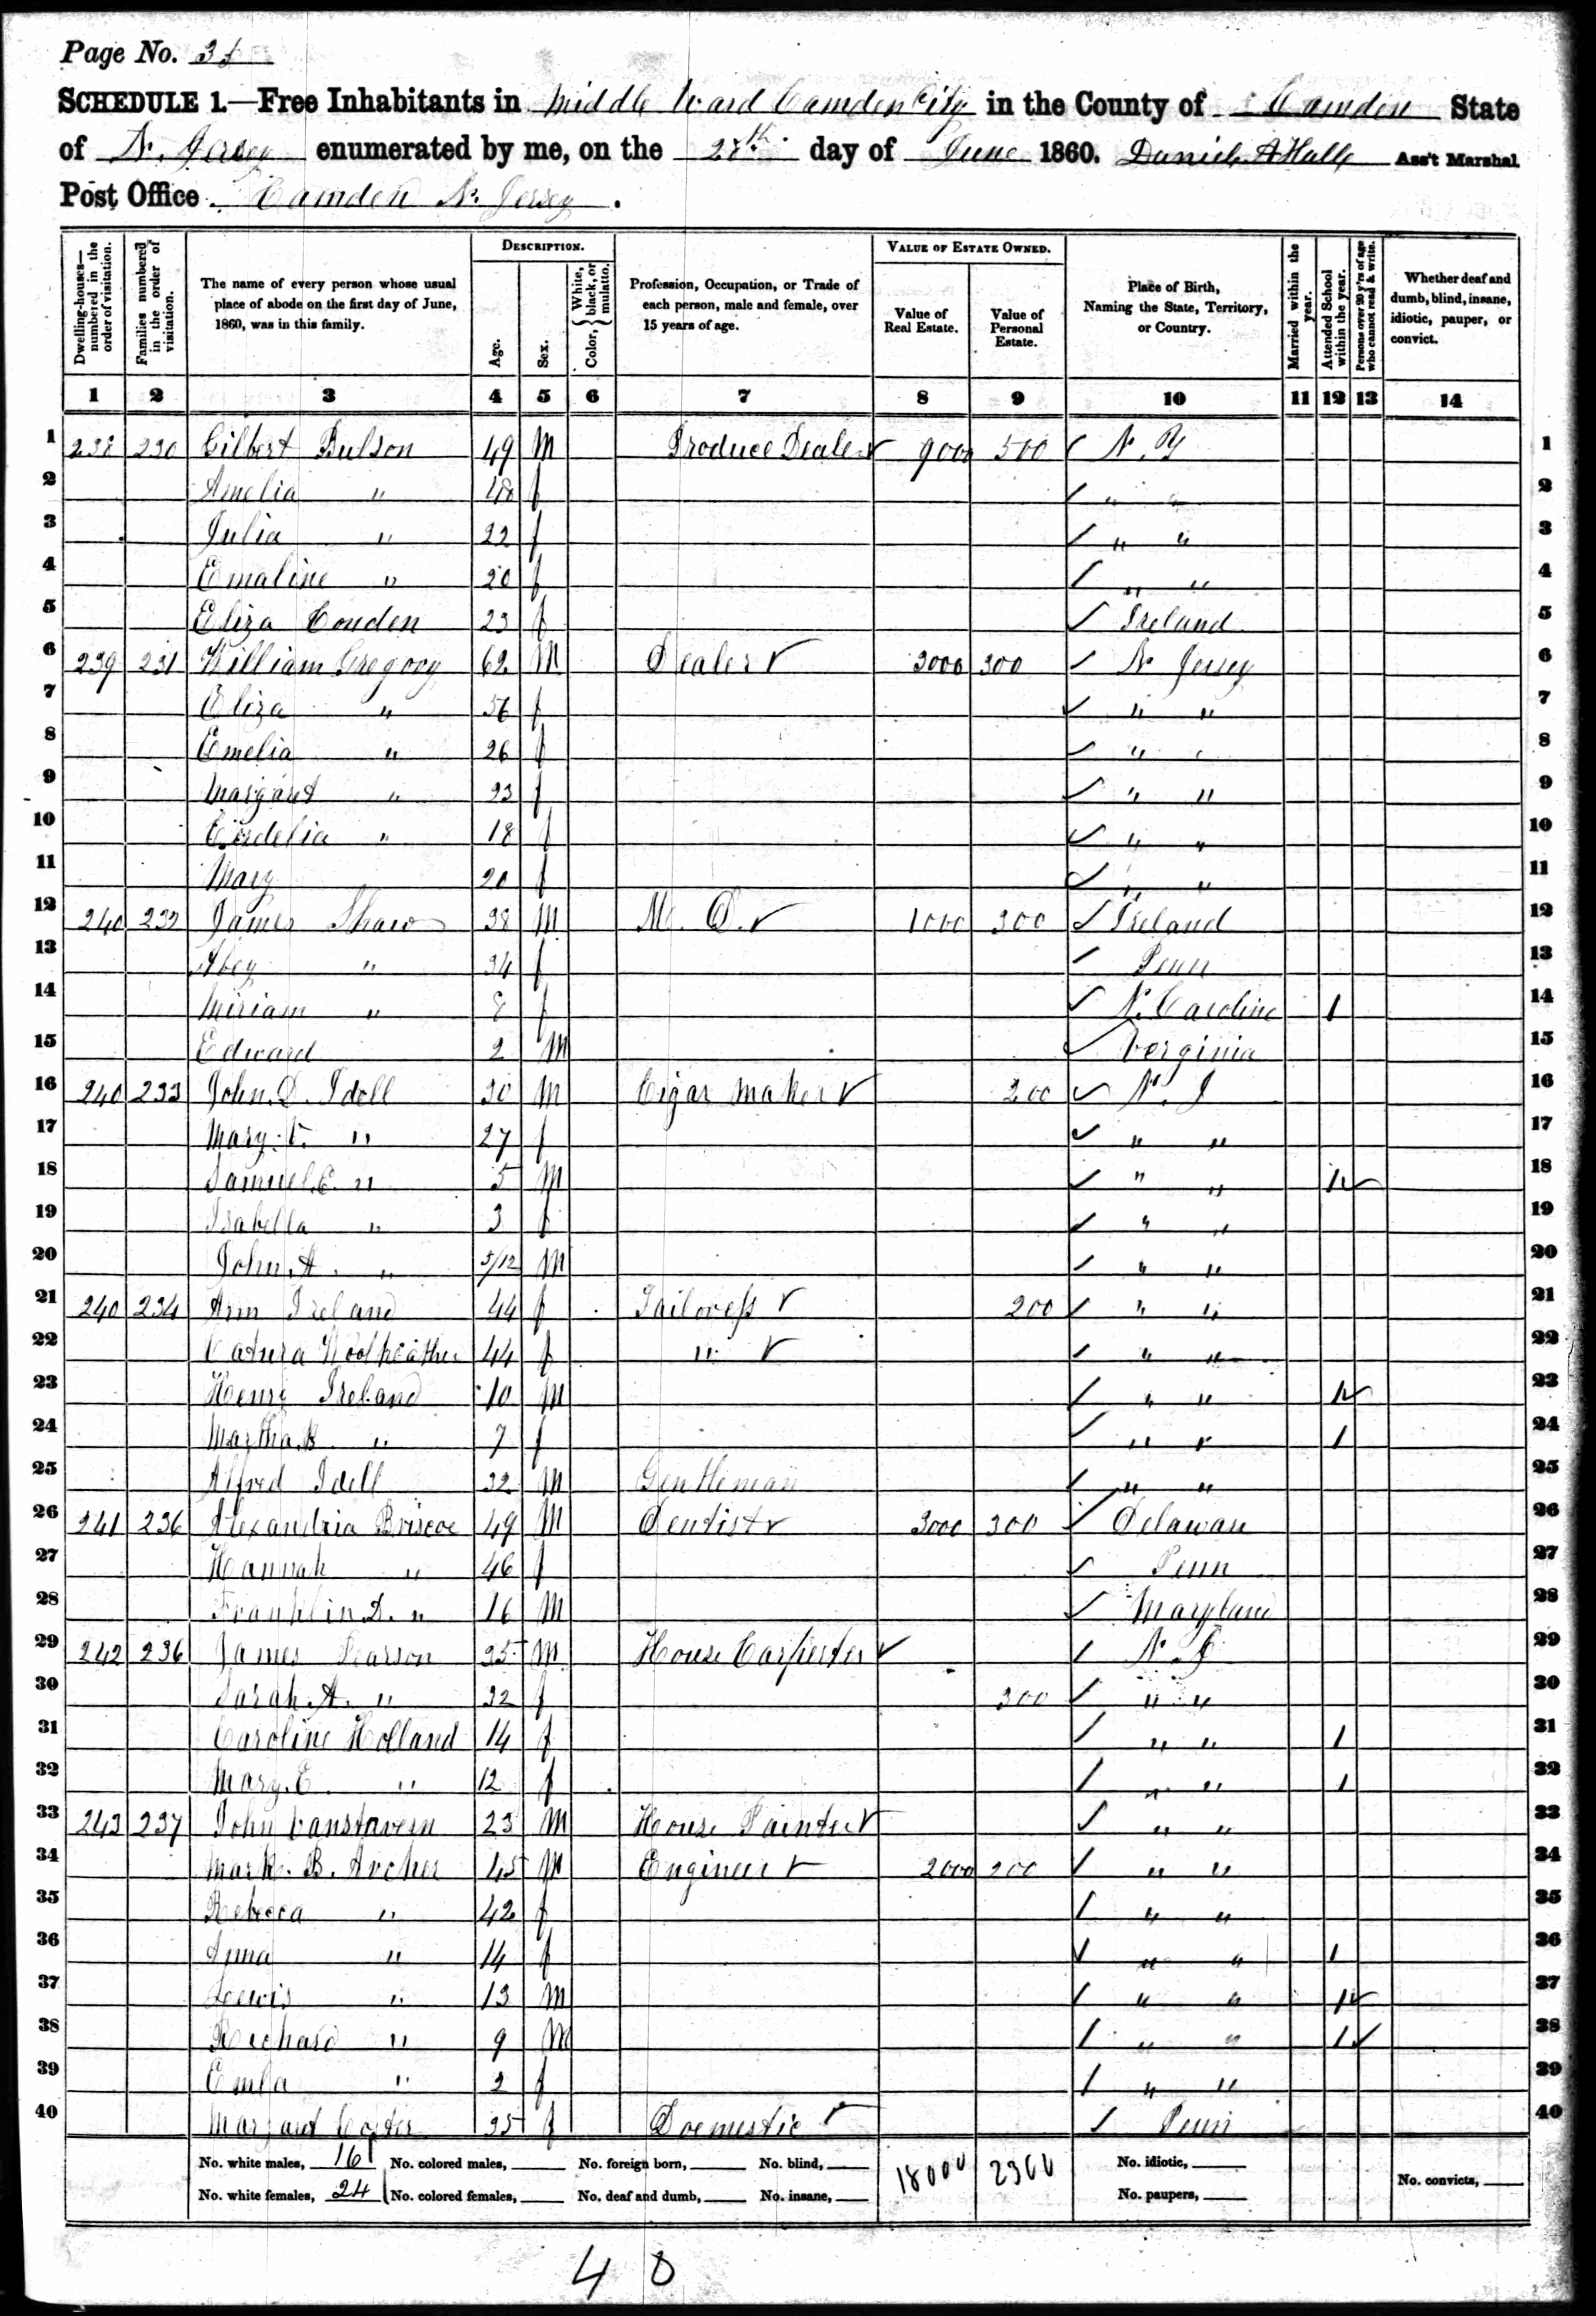 Page No. 31
SCHEDULE 1.—Free Inhabitants in Middle Ward Camden City in the County of Camden State
of N. Jersey enumerated by me, on the 28th day of June 1860. Daniel A Hall Ass't Marshal
Post Office Camden N. Jersey.
Dwelling-houses—numbered in the order of visitation.
Families numbered in the order of visitation.
The name of every person whose usual place of abode on the first day of June, 1860, was in this family.
DESCRIPTION.
Age.
Sex.
Color, { White, black, or mulatto.
Profession, Occupation, or Trade of each person, male and female, over 15 years of age.
VALUE OF ESTATE OWNED.
Value of Real Estate.
Value of Personal Estate.
Place of Birth, Naming the State, Territory, or Country.
Married within the year.
Attended School within the year.
Persons over 20 y'rs of age who cannot read & write.
Whether deaf and dumb, blind, insane, idiotic, pauper, or convict.
1 2 3 4 5 6 7 8 9 10 11 12 13 14
1 238 230 Gilbert Bulson 49 M Produce Dealer 9000 500 N.Y 1
2 Amelia " 48 f " " 2
3 Julia " 22 f " " 3
4 Emaline " 20 f " " 4
5 Eliza Conden 23 f Ireland 5
6 239 231 William Gregory 62 M Dealer 3000 300 N. Jersey 6
7 Eliza " 56 f " " 7
8 Emelia " 26 f " " 8
9 Margaret " 23 f " " 9
10 Cordelia " 18 f " " 10
11 Mary 20 f " " 11
12 240 232 James Shaw 38 M M. D. 1000 300 Ireland 12
13 Abey " 34 f Penn 13
14 Miriam " 8 f N. Caroline 1 14
15 Edward 2 M Verginia 15
16 240 233 John. D. Idell 30 M Cigar Maker 200 N. J 16
17 Mary. " 27 f " " 17
18 Samuel. C. " 5 M " " 1 18
19 Isabella " 3 f " " 19
20 John. A. " 5/12 M " " 20
21 240 234 Ann Ireland 44 f Tailoress 200 " " 21
22 44 f " " " 22
23 Henry Ireland 10 M " " 1 23
24 Martha. B " 7 f " " 1 24
25 Alfred Idell 32 M Gentleman " " 25
26 241 236 Alexandria Briscoe 49 M Dentist 3000 300 Delaware 26
27 Hannah " 46 f Penn 27
28 Franklin D. " 16 M Maryland 28
29 242 236 James Pearson 35 M House Carpenter N. J 29
30 Sarah. A. " 32 f 300 " " 30
31 Caroline Holland 14 f " " 1 31
32 Mary. E. " 12 f " " 1 32
33 243 237 John Vanstavern 23 M House Painter " " 33
34 Mark. B. Archer 45 M Engineer 2000 200 " " 34
35 Rebecca " 42 f " " 35
36 Anna " 14 f " " 1 36
37 Lewis " 13 M " " 1 37
38 Richard " 9 M " " 1 38
39 Emla " 2 f " " 39
40 Margaret 35 f Doemestic Penn 40
No. white males, 16 No. colored males, No. foreign born, No. blind, 18000 2300 No. idiotic,
No. white females, 24 No. colored females, No. deaf and dumb, No. insane, No. paupers, No. convicts,
40